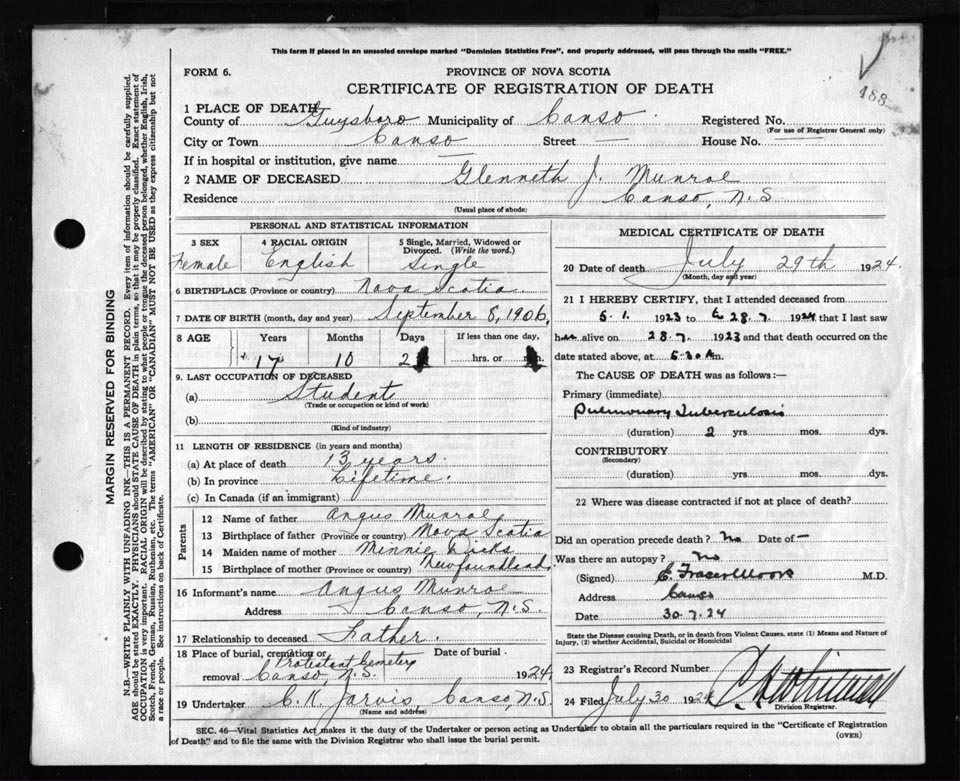 This form if placed in an unsealed envelope marked "Dominion Statistics Free", and properly addressed, will pass through the mails "FREE."
FORM 6.
PROVINCE OF NOVA SCOTIA
CERTIFICATE OF REGISTRATION OF DEATH
488
1 PLACE OF DEATH
County of Guysboro Municipality of Canso Registered No.
(For use of Registrar General only)
City or Town Canso Street — House No. —
If in hospital or institution, give name —
2 NAME OF DECEASED Glenneth J. Munroe
Residence Canso, N.S
(Usual place of abode)
PERSONAL AND STATISTICAL INFORMATION
3 SEX 4 RACIAL ORIGIN 5 Single, Married, Widowed or Divorced. (Write the word.)
Female English Single
6 BIRTHPLACE (Province or country) Nova Scotia
7 DATE OF BIRTH (month, day and year) September 8, 1906
8 AGE Years Months Days If less than one day,
17 10 2 hrs. or
9. LAST OCCUPATION OF DECEASED
(a) Student
(Trade or occupation or kind of work)
(b)
(Kind of industry)
11 LENGTH OF RESIDENCE (in years and months)
(a) At place of death 13 years.
(b) In province Lifetime.
(c) In Canada (if an immigrant)
Parents
12 Name of father Angus Munroe
13 Birthplace of father (Province or country) Nova Scotia
14 Maiden name of mother Minnie
15 Birthplace of mother (Province or country) Newfoundland
16 Informant's name Angus Munroe
Address Canso, N.S.
17 Relationship to deceased Father.
18 Place of burial, cremation or Date of burial
Protestant Cemetery
removal Canso, N.S. 1924
19 Undertaker C. K. Jarvis, Canso, N.S
(Name and address)
MEDICAL CERTIFICATE OF DEATH
20 Date of death July 29th 1924
(Month, day and year)
21 I HEREBY CERTIFY, that I attended deceased from
5.1. 1923 to 28.7. 1924 that I last saw
h alive on 28.7. 1923 and that death occurred on the
date stated above, at m.
The CAUSE OF DEATH was as follows:—
Primary (immediate)
Pulmonary Tuberculosis
(duration) 2 yrs mos. dys.
CONTRIBUTORY
(Secondary)
(duration) yrs. mos. dys.
22 Where was disease contracted if not at place of death?
Did an operation precede death? No Date of —
Was there an autopsy? No
(Signed) M.D.
Address Canso
Date 30.7.24
State the Disease causing Death, or in death from Violent Causes, state (1) Means and Nature of Injury, (2) whether Accidental, Suicidal or Homicidal
23 Registrar's Record Number
24 Filed July 30 1924
Division Registrar.
SEC. 46—Vital Statistics Act makes it the duty of the Undertaker or person acting as Undertaker to obtain all the particulars required in the "Certificate of Registration
of Death" and to file the same with the Division Registrar who shall issue the burial permit. (OVER)
MARGIN RESERVED FOR BINDING
N.B.—WRITE PLAINLY WITH UNFADING INK—THIS IS A PERMANENT RECORD. Every item of information should be carefully supplied.
AGE should be stated EXACTLY. PHYSICIANS should STATE CAUSE OF DEATH in plain terms, so that it may be properly classified. Exact statement of
OCCUPATION is very important. RACIAL ORIGIN will be described by stating to what people or tongue the deceased person belonged, whether English, Irish,
Scotch, French, German, Russian, Ruthenian, etc. The terms "AMERICAN" or "CANADIAN" MUST NOT BE USED as they express citizenship but not
a race or people. See instructions on back of Certificate.